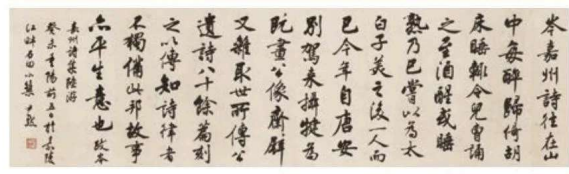 岑嘉州詩往在山
中每醉歸倚胡
床睡輒令兒曹誦
之至酒醒或睡
熟乃已嘗以為太
白子美之後一人而
已今年自唐安
別駕來攝犍為
既畫公像齋壁
又雜取世所傳公
遺詩八十餘篇刻
之以傳知詩律者
不獨備此邦故事
亦平生意也 跋岑
嘉州詩集陸游
癸未重陽前五日於嘉陵
江畔石田小築 尹默